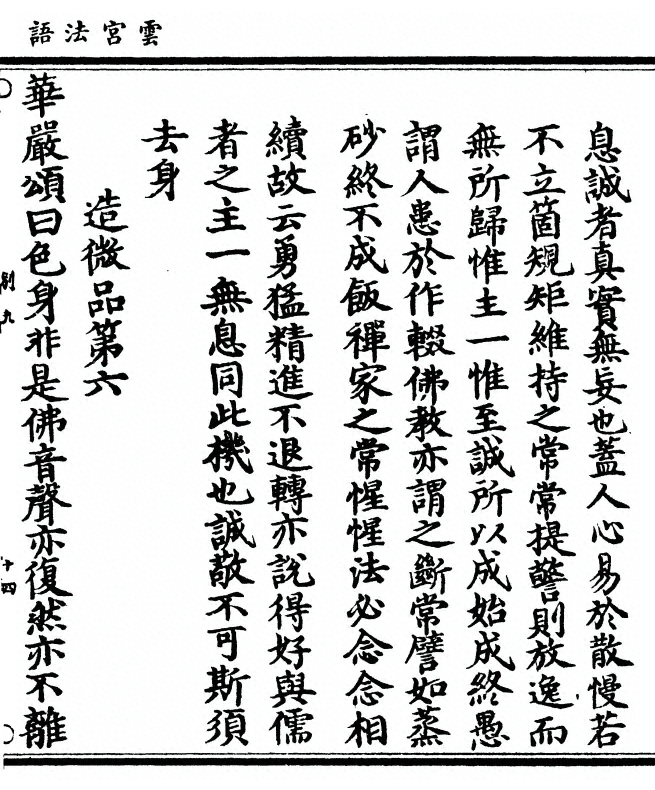 雲宮法語
息誠者真實無妄也蓋人心易於散慢若
不立箇䂓矩維持之常常提警則放逸而
無所歸惟主一惟至誠所以成始成終愚
謂人患於作輟佛教亦謂之斷常譬如蒸
砂終不成飯禪家之常惺惺法必念念相
續故云勇猛精進不退轉亦說得好與儒
者之主一無息同此機也誠敬不可斯須
去身
造微品第六
華嚴頌曰色身非是佛音聲亦復然亦不離
刹九
十四